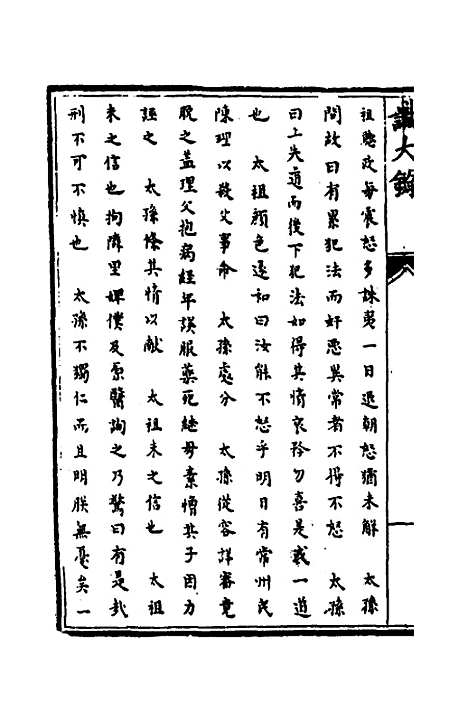 識大錄
祖聽政每震怒多誅夷一日退朝怒猶未解　太孫
問故曰有累犯法而奸惡異常者不得不怒　太孫
曰上失道而後下犯法如得其情哀矜勿喜是或一道
也　太祖顏色遂和曰汝能不怒乎明日有常州民
陳理以殺父事命　太孫處分　太孫從容詳審竟
脫之蓋理父抱病經年誤服藥死繼母素憎其子因力
誣之　太孫條其情以獻　太祖未之信也　太祖
未之信也拘隣里婢僕及原醫詢之乃驚曰有是哉
刑不可不慎也　太孫不獨仁而且明朕無憂矣一